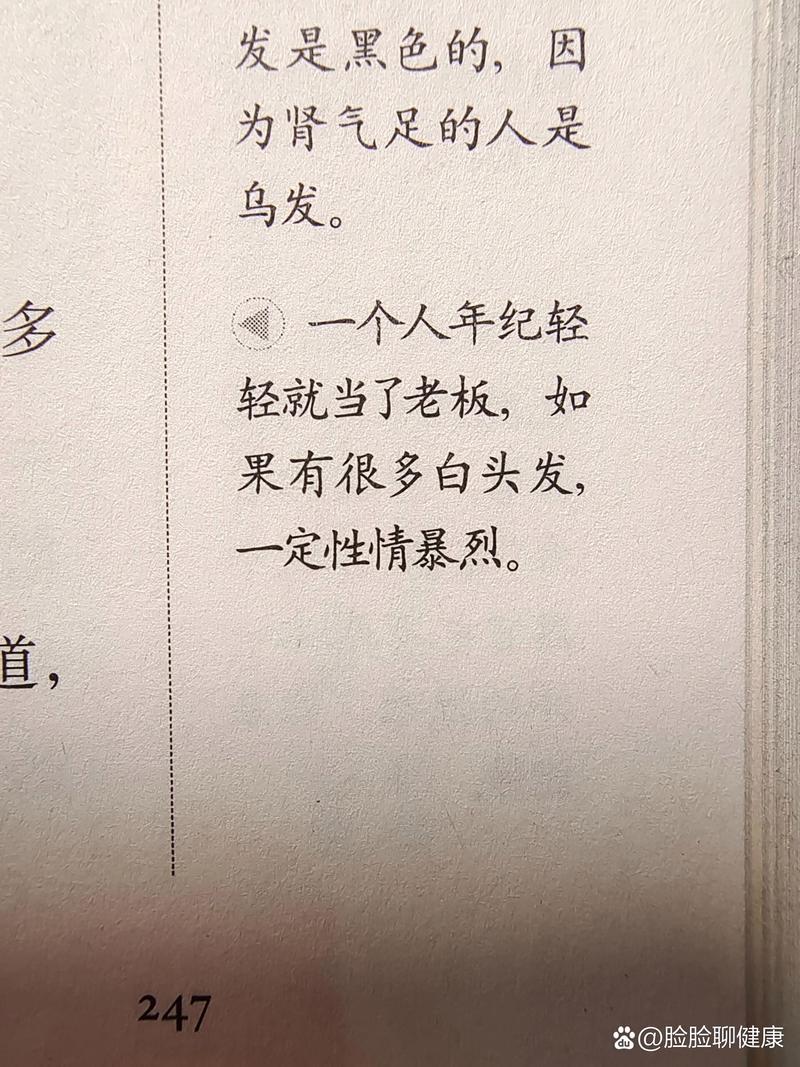 发是黑色的，因
为肾气足的人是
乌发。
多
一个人年纪轻
轻就当了老板，如
果有很多白头发，
一定性情暴烈。
道，
247
du @脸脸聊健康